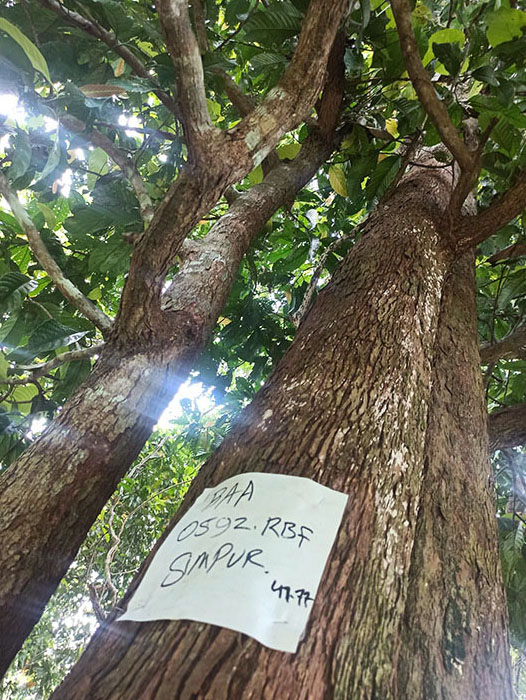 BAA
0592.RBF
SIMPUR.
47.77